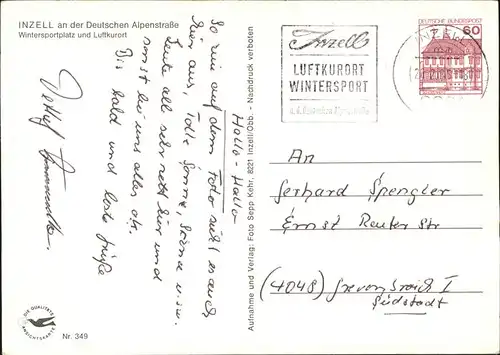 INZELL an der Deutschen Alpenstraße
Wintersportplatz und Luftkurort
Hallo - Hallo
So wie auf dem Foto sieht es auch
hier aus, Tolle Sonne, Schnee u.s.w.
Leute all sehr nett hier und
sonst bei uns alles o.k.
Bis bald und beste Grüße
Detlef
DIE QUALITÄTS
ANSICHTSKARTE
Nr. 349
Aufnahme und Verlag: Foto Sepp Kehr, 8221 Inzell/Obb. - Nachdruck verboten
Inzell
LUFTKURORT
WINTERSPORT
a.d. deutschen Alpenstraße
INZELL
DEUTSCHE BUNDESPOST
60
An
Gerhard Spengler
Ernst Reuter Str
(4048) Grevenbroich I
Südstadt